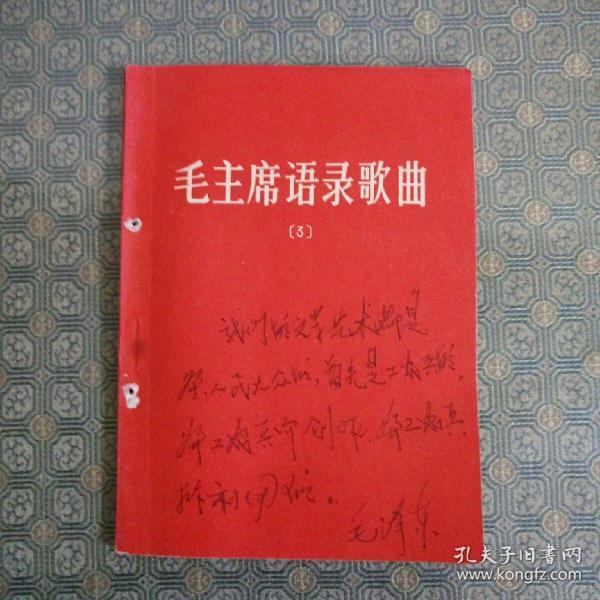 毛主席语录歌曲
〔3〕
我们的文学艺术都是
为人民大众的，首先是为工农兵的，
为工农兵而创作，为工农兵
所利用的。
毛泽东
孔夫子旧书网
www.kongfz.com